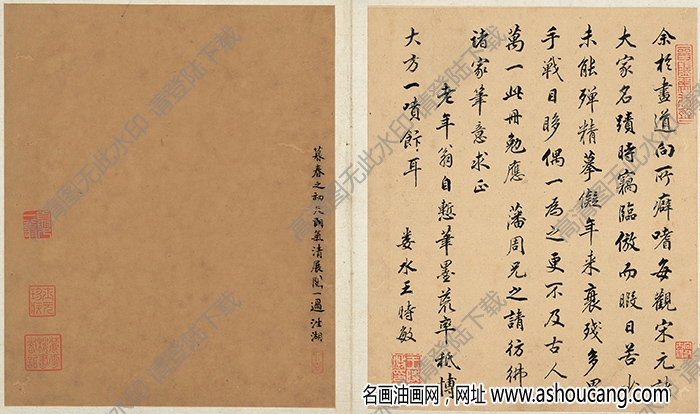 余於畫道向所癖嗜每觀宋元諸
大家名蹟時竊臨倣而暇日苦少
未能殫精摹儗年來衰殘多累
手戰目眵偶一為之更不及古人
萬一此冊勉應 藩周兄之請彷彿
諸家筆意求正
老年翁自慙筆墨荒率秪博
大方一噴飰耳
婁水王時敏
暮春之初 氣清展閱一過
高清图无此水印 请登陆下载
名画油画网，网址 www.ashoucang.com